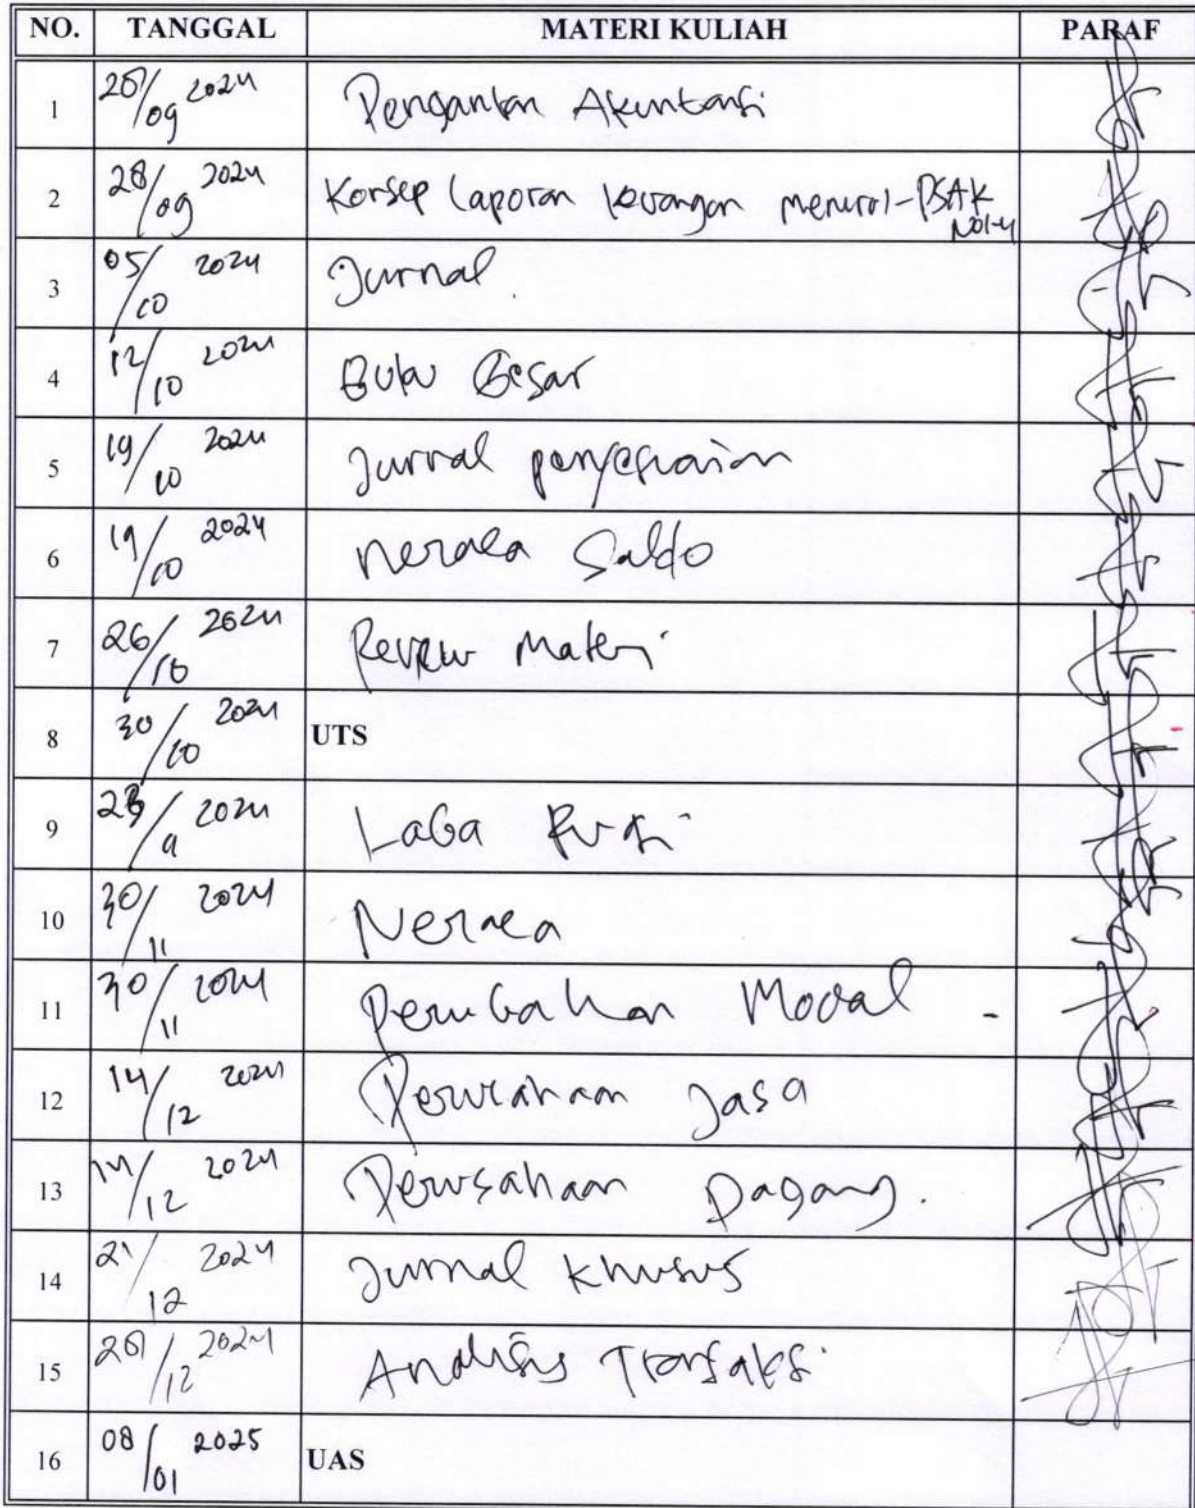 NO. TANGGAL MATERI KULIAH PARAF
1 28/09 2024 Pengantar Akuntansi
2 28/09 2024 Konsep Laporan keuangan menurut PSAK
3 05/10 2024 Jurnal
4 12/10 2024 Buku Besar
5 19/10 2024 Jurnal penyesuaian
6 19/10 2024 Neraca Saldo
7 26/10 2024 Review Materi
8 30/10 2024 UTS
9 2024 Laba Rugi
10 30/11 2024 Neraca
11 30/11 2024 Perubahan Modal
12 14/12 2024 Perusahaan Jasa
13 14/12 2024 Perusahaan Dagang.
14 21/12 2024 Jurnal Khusus
15 28/12 2024 Analisis Transaksi
16 08/01 2025 UAS